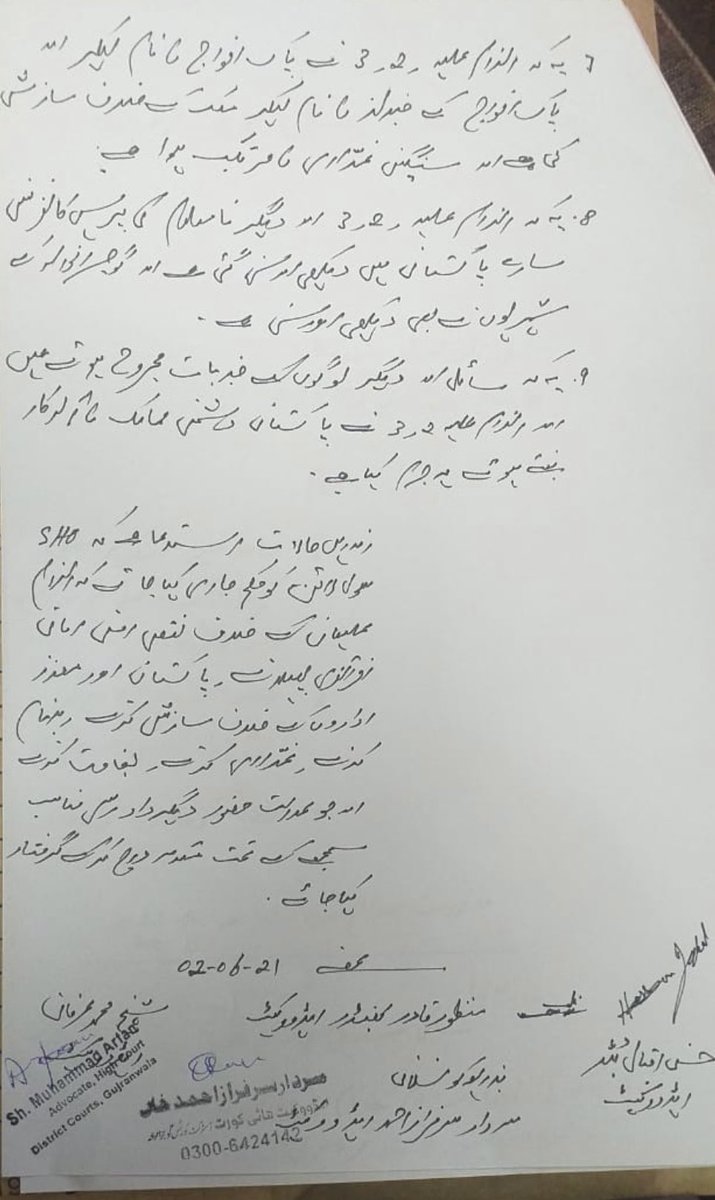 7 یہ کہ الزام علیہ 2, 3 نے پاک افواج کا نام لیکر اور
پاک افواج کے جنرلز کا نام لیکر ملک کے خلاف سازش
کی ہے اور سنگین غداری کا مرتکب ہوا ہے۔
8۔ یہ کہ الزام علیہ 2, 3 اور دیگر نامعلوم کی پریس کانفرنس
سارے پاکستان میں دیکھی اور سنی گئی ہے اور گوجرانوالہ کے
شہریوں نے بھی دیکھی اور سنی ہے۔
9۔ یہ کہ سائل اور دیگر لوگوں کے جذبات مجروح ہوئے ہیں
اور الزام علیہ 2, 3 نے پاکستان دشمن ممالک کا آلہ کار
بنتے ہوئے یہ جرم کیا ہے۔
حالات استدعا ہے کہ SHO
سول لائن کو حکم جاری کیا جائے کہ الزام
علیہان کے خلاف نقص امن
پھیلانے، پاکستان اور معزز
اداروں کے خلاف سازش کرنے، بدنام
کرنے، غداری کرنے، بغاوت کرنے
اور جو عدالت حضور دیگر مناسب
سمجھے کے تحت مقدمہ درج کر کے گرفتار
کیا جائے۔
02-06-21
منظور قادر ایڈووکیٹ
شیخ محمد عرفان
Sh. Muhammad Arfan
Advocate, High Court
District Courts, Gujranwala
حسن اقبال
ایڈووکیٹ
بذریعہ کونسلان
سردار سرفراز احمد خان
ایڈووکیٹ ہائی کورٹ
0300-6424142
سردار سرفراز احمد ایڈووکیٹ